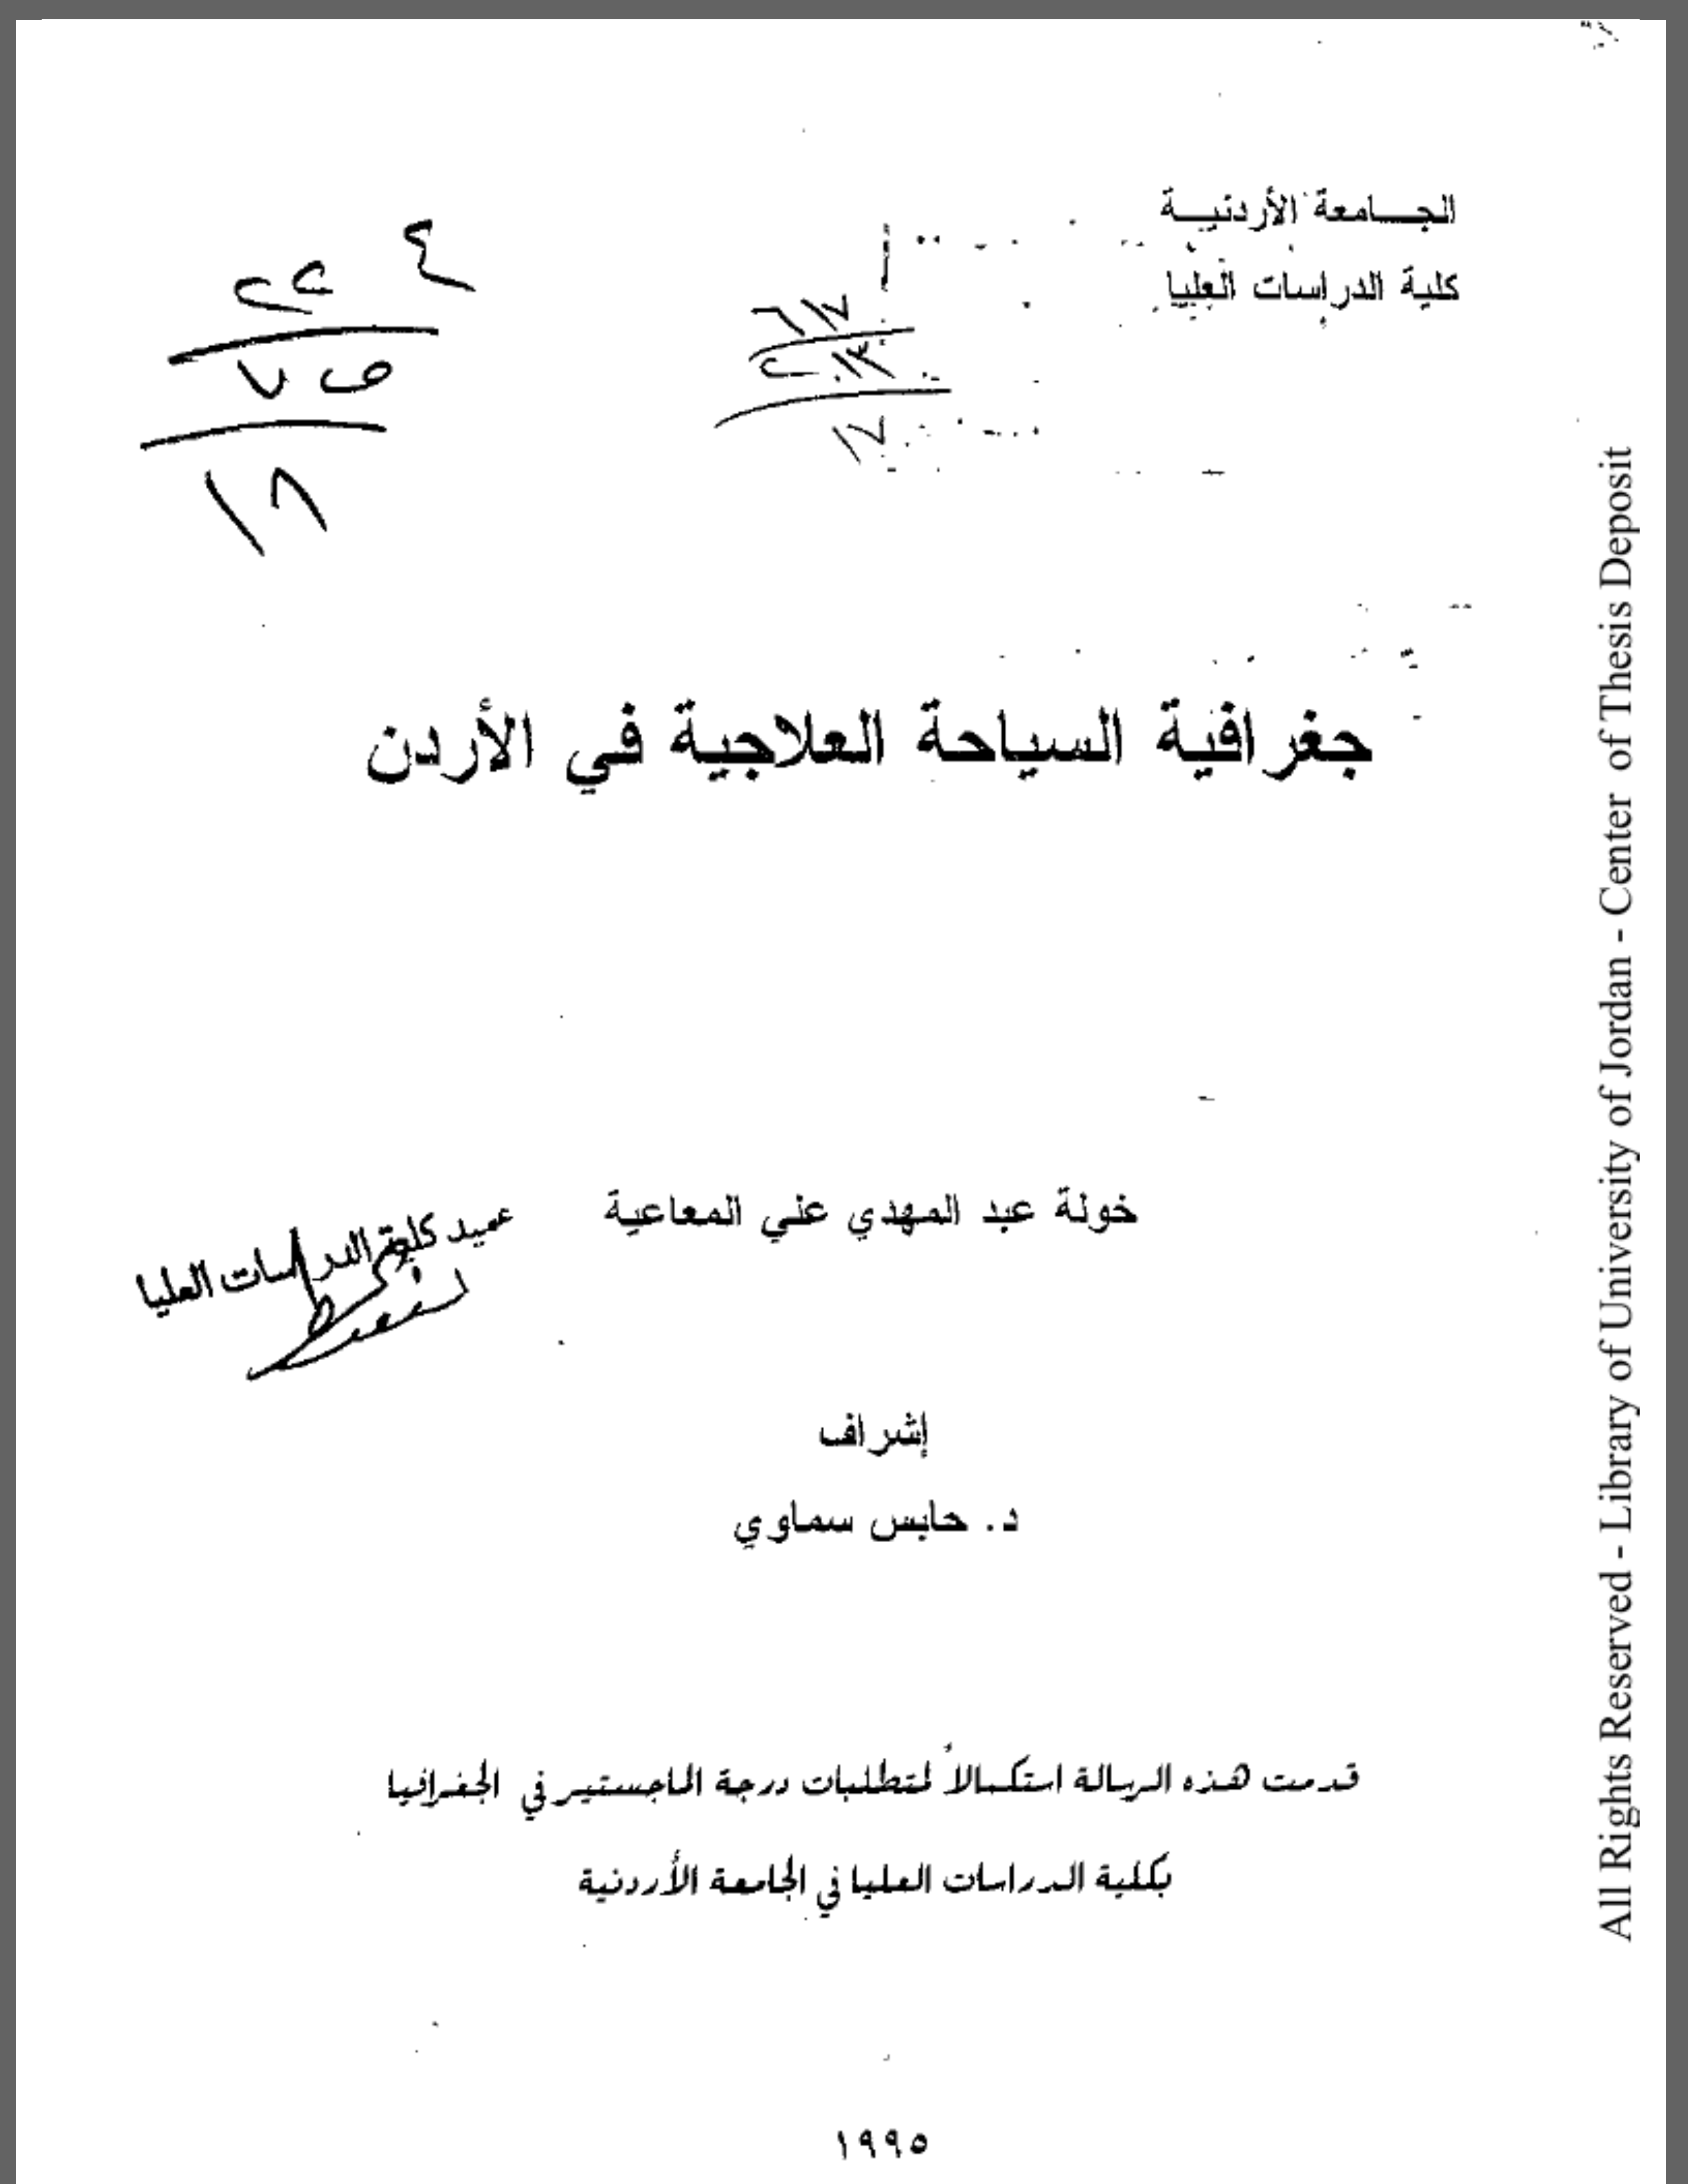 الجـــامعة الأردنيــة
كلية الدراسات العليا
جغرافية السياحة العلاجية في الأردن
خولة عبد المهدي علي المعاعية
عميد كلية الدراسات العليا
إشراف
د. حابس سماوي
قدمت هذه الرسالة استكمالاً لمتطلبات درجة الماجستير في الجغرافيا
بكلية الدراسات العليا في الجامعة الأردنية
١٩٩٥
All Rights Reserved - Library of University of Jordan - Center of Thesis Deposit